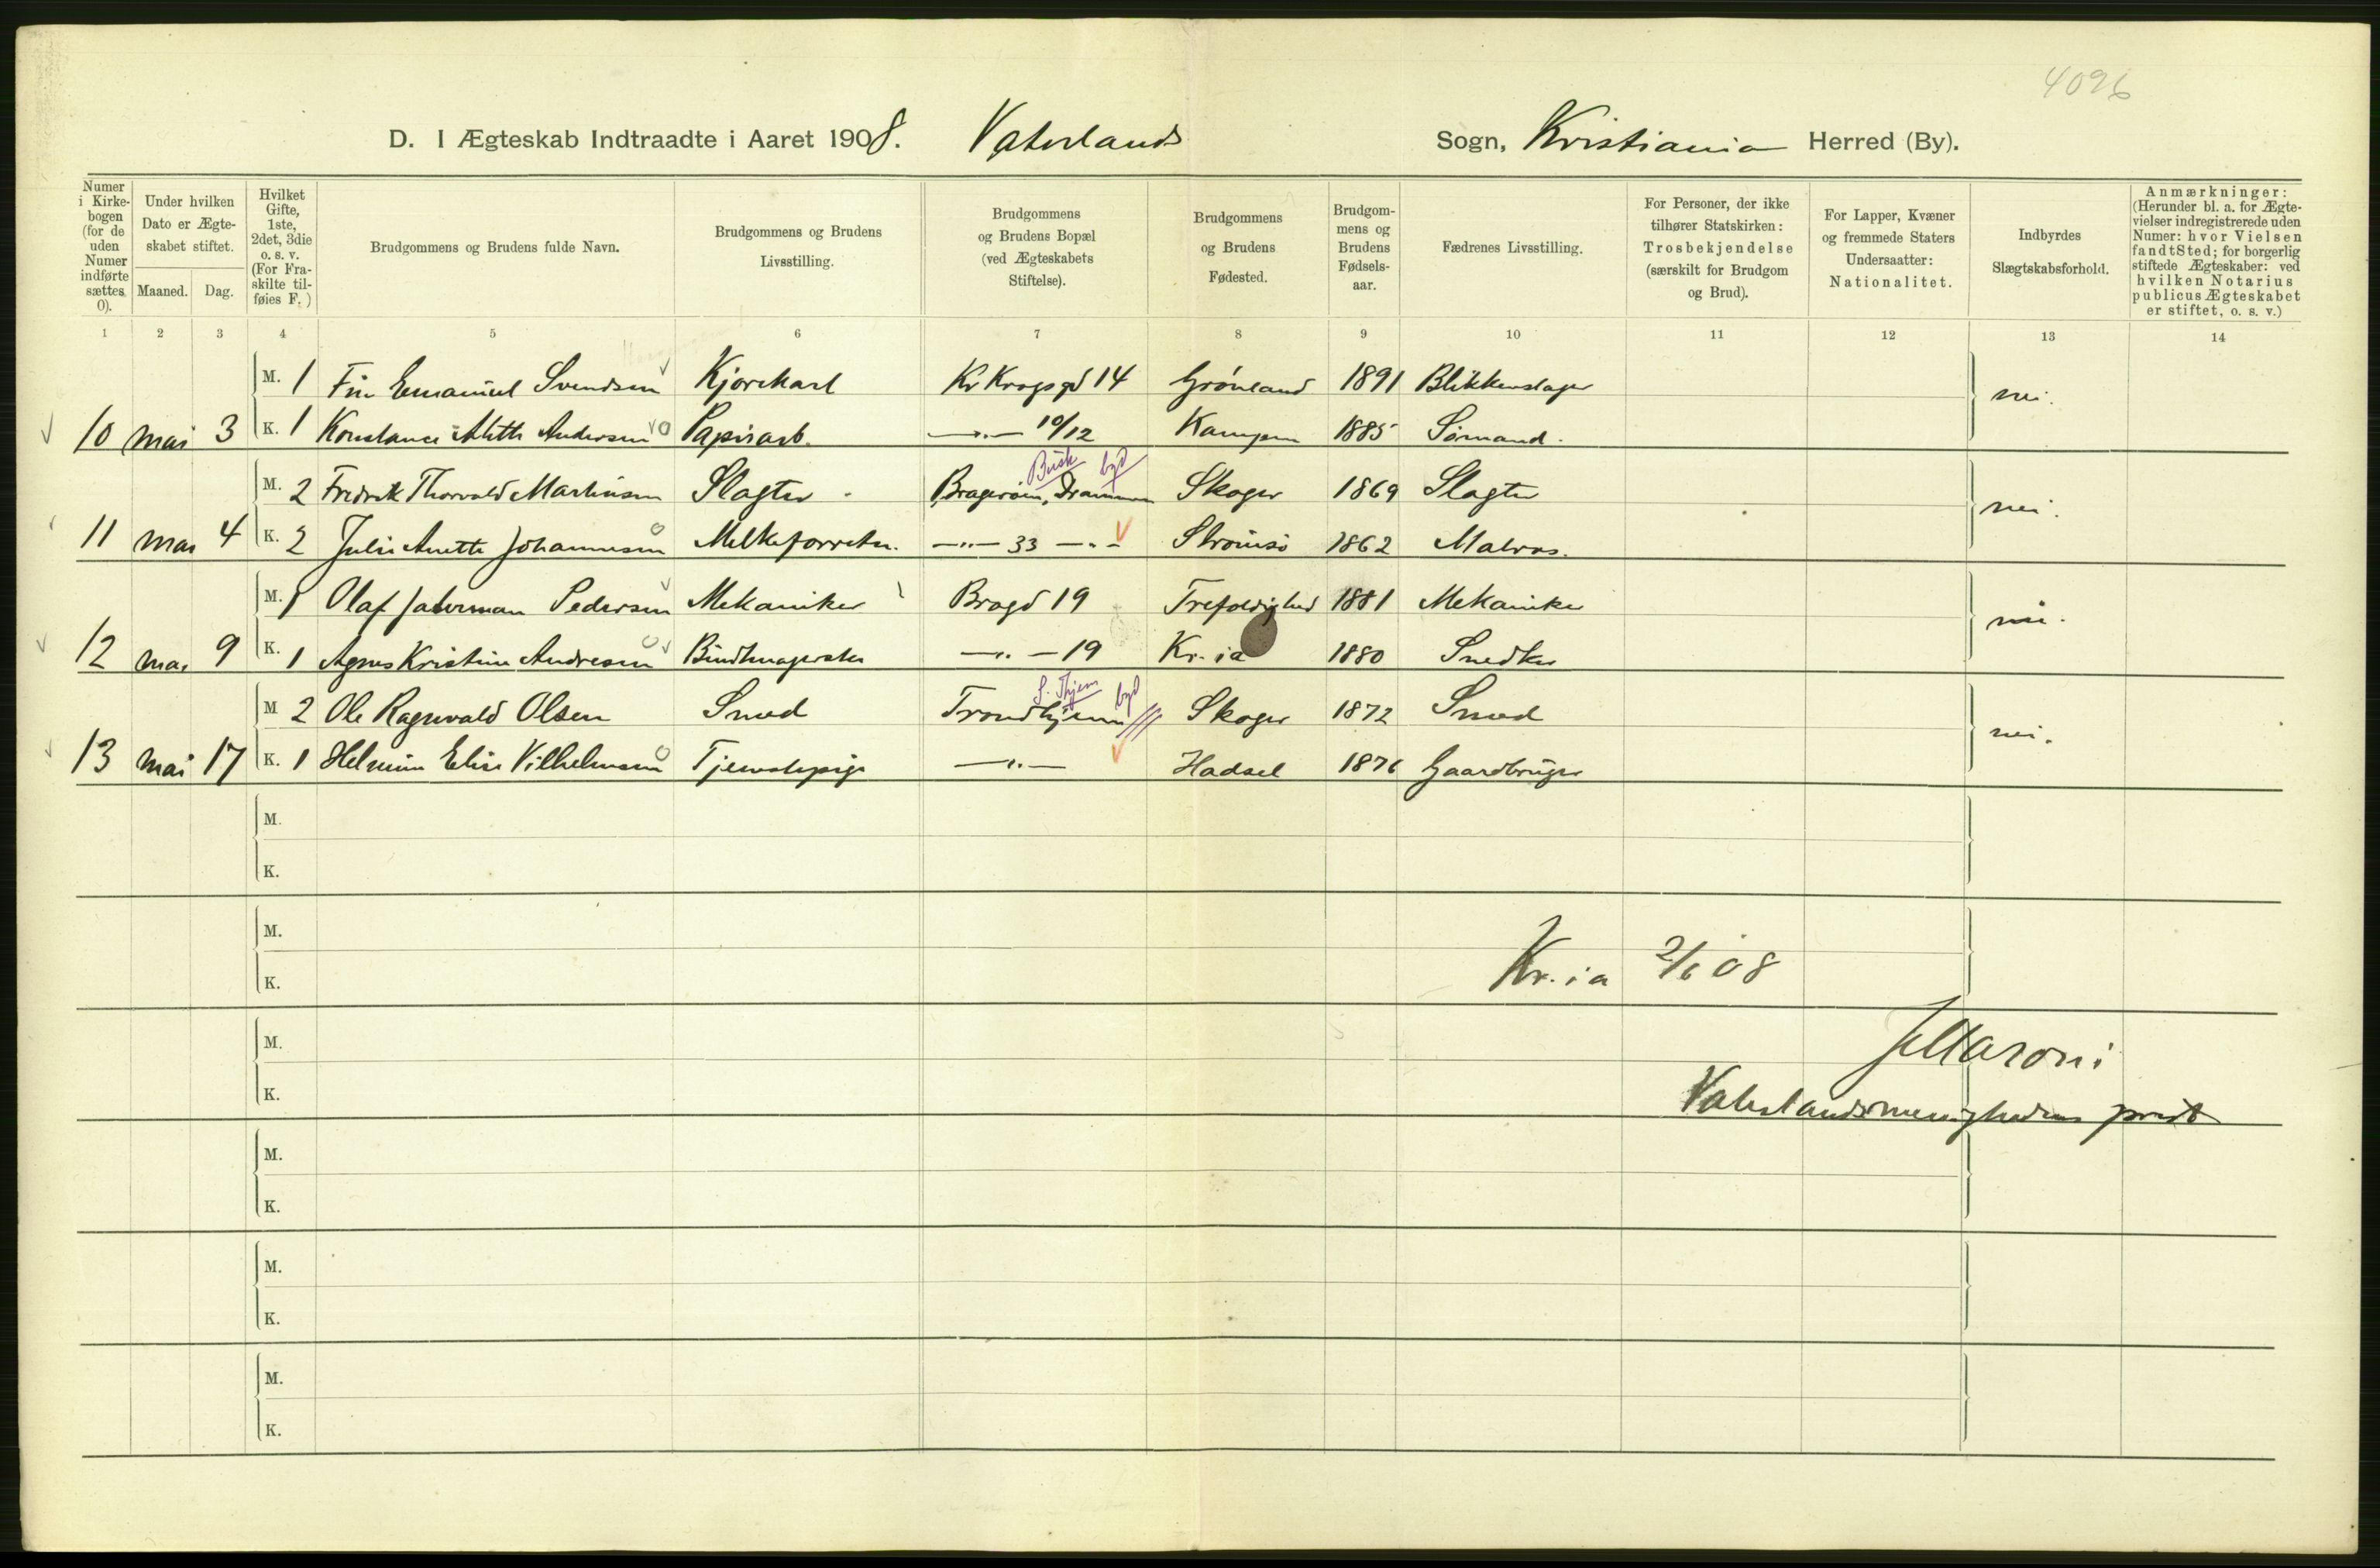 4096
D. I Ægteskab Indtraadte i Aaret 1908. Vaterlands Sogn, Kristiania Herred (By).
Numer i Kirkebogen (for de uden Numer indførte sættes 0).
Under hvilken Dato er Ægteskabet stiftet.
Maaned. Dag.
Hvilket Gifte, 1ste, 2det, 3die o. s. v. (For Fraskilte tilføies F.)
Brudgommens og Brudens fulde Navn.
Brudgommens og Brudens Livsstilling.
Brudgommens og Brudens Bopæl (ved Ægteskabets Stiftelse).
Brudgommens og Brudens Fødested.
Brudgommens og Brudens Fødselsaar.
Fædrenes Livsstilling.
For Personer, der ikke tilhører Statskirken: Trosbekjendelse (særskilt for Brudgom og Brud).
For Lapper, Kvæner og fremmede Staters Undersaatter: Nationalitet.
Indbyrdes Slægtskabsforhold.
Anmærkninger: (Herunder bl. a. for Ægtevielser indregistrerede uden Numer: hvor Vielsen fandt Sted; for borgerlig stiftede Ægteskaber: ved hvilken Notarius publicus Ægteskabet er stiftet, o. s. v.)
1 2 3 4 5 6 7 8 9 10 11 12 13 14
M. 1 Fin Emanuel Svendsen Kjørekarl Kr Krogs gd 14 Grønland 1891 Blikkenslager nei.
10 mai 3 K. 1 Konstance Alette Andersen Papirarb. —„— 10/12 Kampen 1885 Sømand.
Busk byd
M. 2 Fredrik Thorvald Martinsen Slagter Bragerøen, Drammen Skoger 1869 Slagter nei.
11 mai 4 K. 2 Julie Anette Johannesen Melkeforretn. —„— 33 —„— Strømsø 1862 Matros.
M. 1 Olaf Jaterman Pedersen Mekaniker Brogd 19 Trefoldighed 1881 Mekaniker nei.
12 mai 9 K. 1 Agnes Kristine Andresen Buntmagerske —„— 19 Kr.ia 1880 Snedker
S. Thjem byd
M 2 Ole Ragnvald Olsen Smed Trondhjem Skoger 1872 Smed nei.
13 mai 17 K. 1 Helmine Elise Vilhelmsen Tjenestepige —„— Hadsel 1876 Gaardbruger
M.
K.
M.
K.
Kr.ia 2/6 08
M.
J Maroni
K.
Vaterlandsmenighedens prest
M.
K.
M.
K.
M.
K.